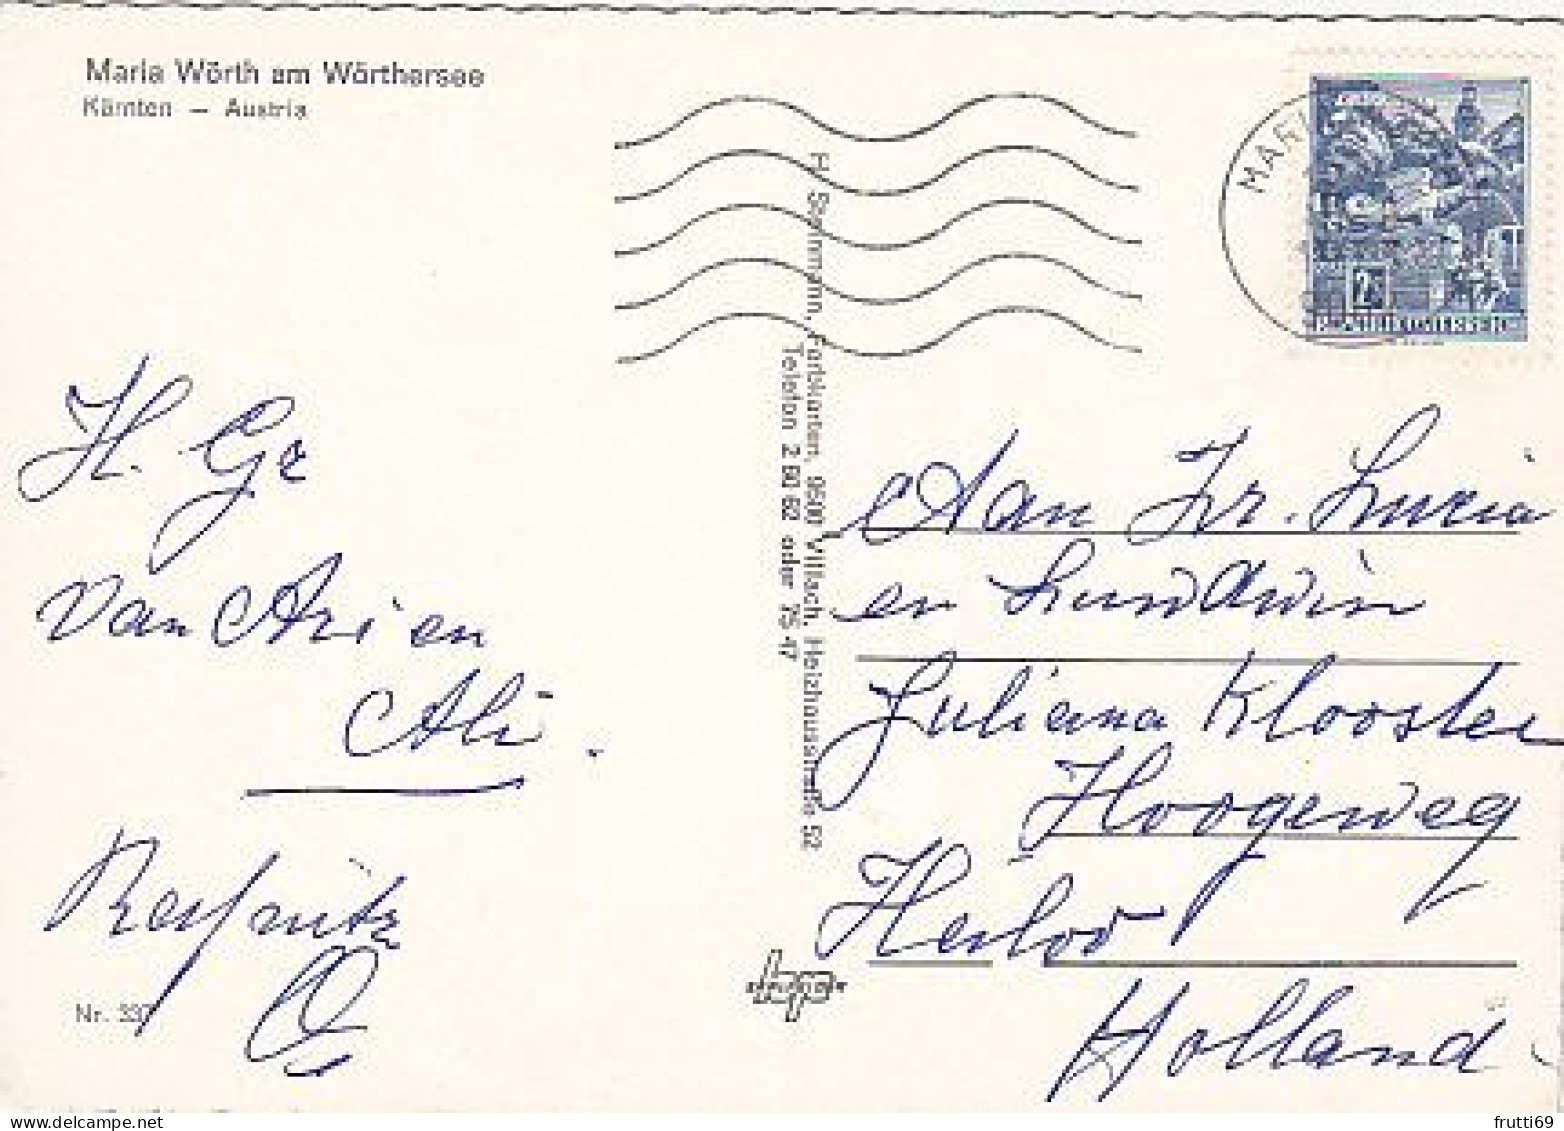 Maria Wörth am Wörthersee
Kärnten — Austria
H. Ge
van Ari en
Ali.
Nr. 337
H. Steinmann, Farbkarten, 9500 Villach, Heizhausstraße 52
Telefon 2 60 62 oder 75 47
MARI
2
REPUBLIK ÖSTERREICH
Aan Zr. Lucia
en Lundwin
Juliana Klooster
Hoogeweg
Heiloo
Holland
frutti69